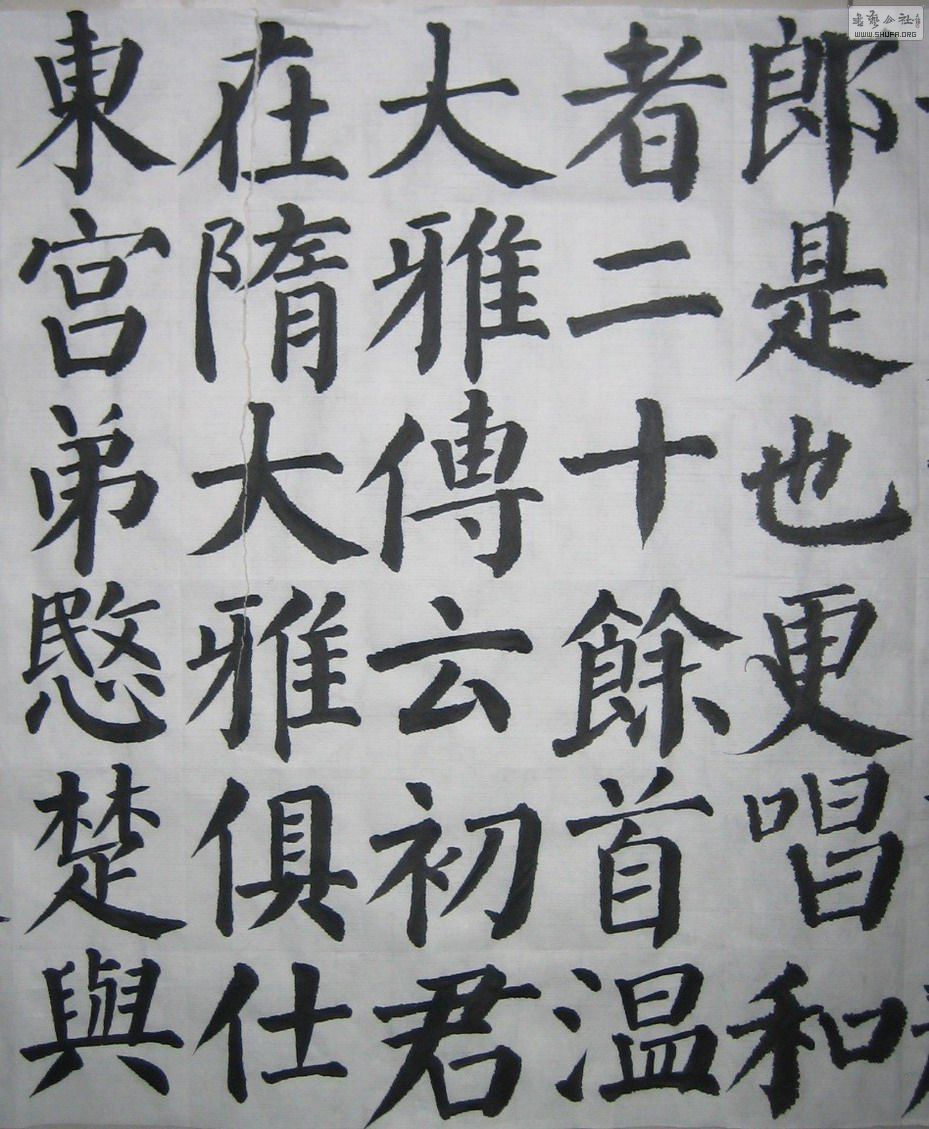 郎是也更唱和
者二十餘首温
大雅傳云初君
在隋大雅俱仕
東宫弟愍楚與
書艺公社
WWW.SHUFA.ORG